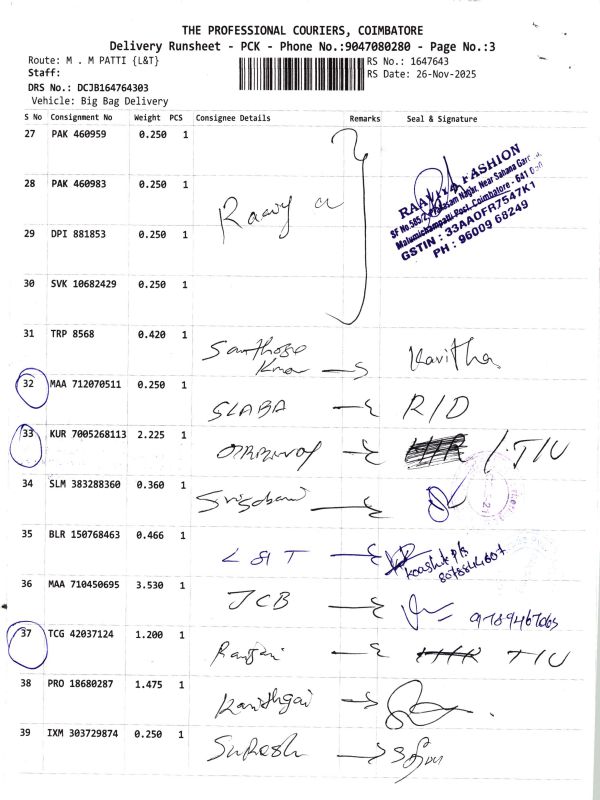 THE PROFESSIONAL COURIERS, COIMBATORE
Delivery Runsheet - PCK - Phone No.:9047080280 - Page No.:3
Route: M . M PATTI {L&T} RS No.: 1647643
Staff: RS Date: 26-Nov-2025
DRS No.: DCJB164764303
Vehicle: Big Bag Delivery
S No Consignment No Weight PCS Consignee Details Remarks Seal & Signature
27 PAK 460959 0.250 1
28 PAK 460983 0.250 1
FASHION
Malumichampatti Post, Coimbatore - 641
GSTIN : 33AAOFR7547K1
PH : 96009 68249
29 DPI 881853 0.250 1
30 SVK 10682429 0.250 1
31 TRP 8568 0.420 1 Kavitha
32 MAA 712070511 0.250 1 SLABA R/D
33 KUR 7005268113 2.225 1
34 SLM 383288360 0.360 1
35 BLR 150768463 0.466 1 L&T
36 MAA 710450695 3.530 1 JCB
37 TCG 42037124 1.200 1
38 PRO 18680287 1.475 1
39 IXM 303729874 0.250 1 Suresh